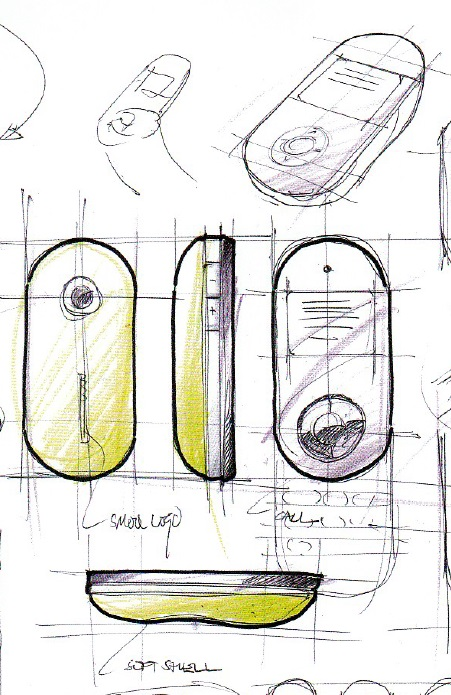 SHELL LOGO
CALL
SOFT SHELL